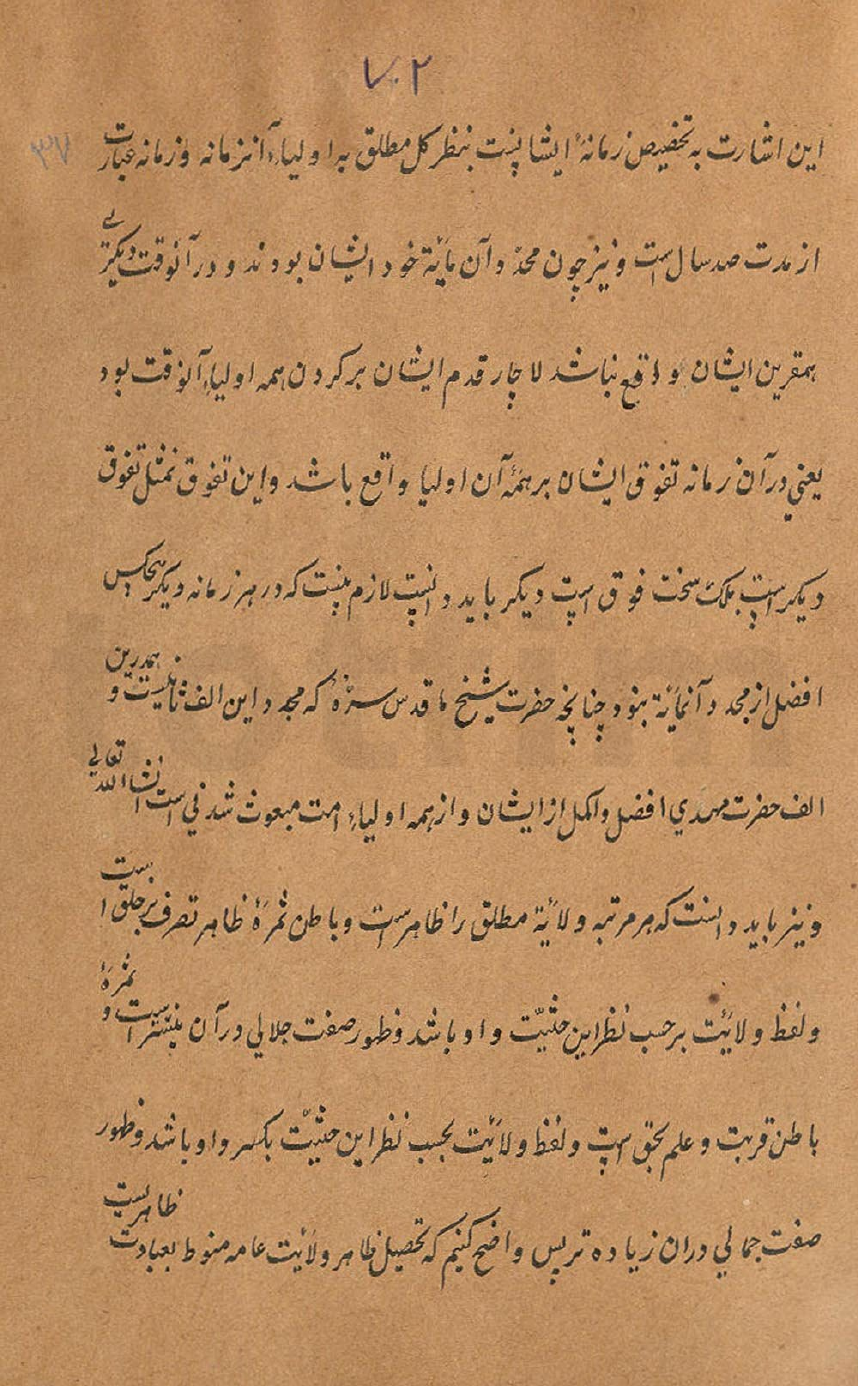 ۷۰۲
۳۷
این اشارت به تخصیص زمانهٔ ایشانست بنظر کل مطلق به اولیاء آنزمانه و زمانه عبارت
از مدت صد سال است و نیز چون مجدد آن مائة خود ایشان بودند و در آنوقت دیگرے
همقرین ایشان و واقع نباشد لاچار قدم ایشان بر گردن همه اولیاء آنوقت بود
یعنی در آن زمانه تفوق ایشان بر همهٔ آن اولیا واقع باشد و این تفوق نمثل تفوق
دیگر است بلکه سخت فوق است دیگر باید دانست لازم نیست که در هر زمانه دیگر هیچکس
افضل از مجدد آنمائة بنود چنانچه حضرت شیخ ما قدس سره که مجدد این الف ثانیست و همدرین
الف حضرت مهدي افضل و اکمل از ایشان و از همه اولیاء امت مبعوث شدني است انشاالله تعالي
و نیز باید دانست که هر مرتبه ولایة مطلق را ظاهر است و باطن ثمرهٔ ظاهر تصرف بر خلق است
و لفظ ولایت بر حسب نظر این حثیّت و او باشد و ظهور صفت جلالي در آن بیشتر است و ثمرهٔ
باطن قربت و علم بحق است و لفظ ولایت بحسب نظر این حثیّت بکسر واو باشد و ظهور
صفت جمالي دران زیاده تر پس واضح کنیم که تحصیل ظاهر ولایت عامه منوط بعبادت ظاهریست